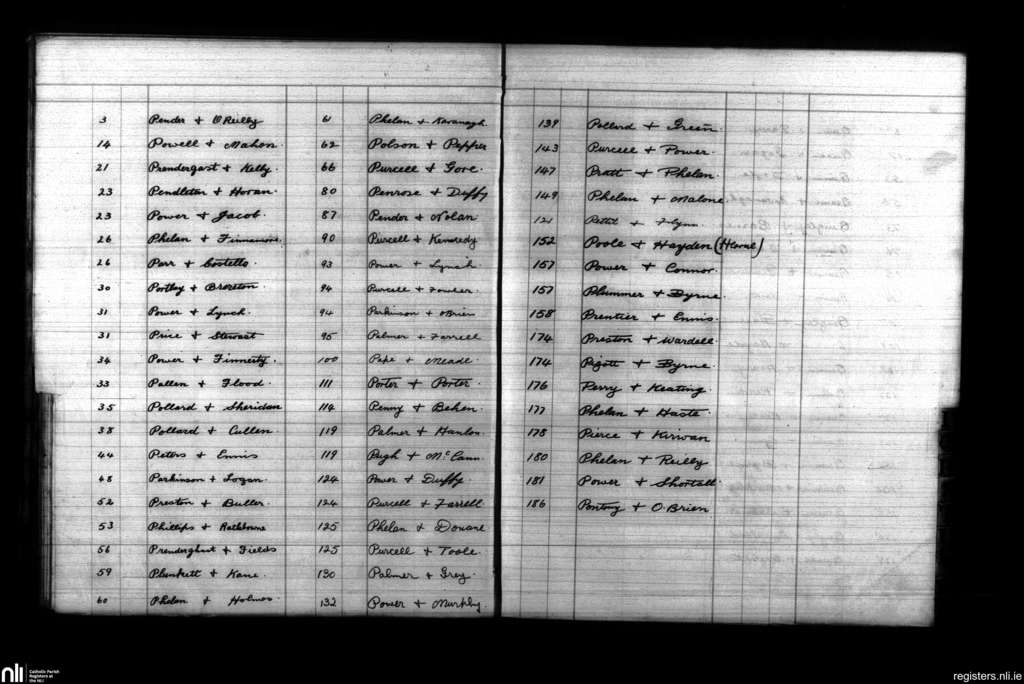 3 Pender + O'Reilly
14 Powell + Mahon
21 Prendergast + Kelly
23 Pendleton + Horan
23 Power + Jacob
26 Phelan + Finnemore
26 Parr + Costello
30 Portley + Brereton
31 Power + Lynch
31 Price + Stewart
34 Power + Finnerty
33 Pallen + Flood
35 Pollard + Sheridan
38 Pollard + Cullen
44 Peters + Ennis
48 Parkinson + Logan
52 Preston + Butler
53 Phillips + Rathborne
56 Prenderghast + Fields
59 Plunkett + Kane
60 Phelan + Holmes
61 Phelan + Kavanagh
62 Polson + Pepper
66 Purcell + Gore
80 Penrose + Duffy
87 Pender + Nolan
90 Purcell + Kennedy
93 Power + Lynch
94 Purcell + Fowler
94 Parkinson + O'Brien
95 Palmer + Farrell
100 Pape + Meade
111 Porter + Porter
114 Penny + Behen
119 Palmer + Hanlon
119 Pugh + McCann
124 Power + Duffy
124 Purcell + Farrell
125 Phelan + Donane
125 Purcell + Toole
130 Palmer + Grey
132 Power + Murphy
139 Pollard + Green
143 Purcell + Power
147 Pratt + Phelan
149 Phelan + Malone
121 Pettit + Flynn
152 Poole + Hayden (Horne)
157 Power + Connor
157 Plummer + Byrne
158 Prentier + Ennis
174 Preston + Wardell
174 Pigott + Byrne
176 Perry + Keating
177 Phelan + Haste
178 Pierce + Kirwan
180 Phelan + Reilly
181 Power + Shortall
186 Pontony + O'Brien
nli Catholic Parish
Registers at
the NLI
registers.nli.ie